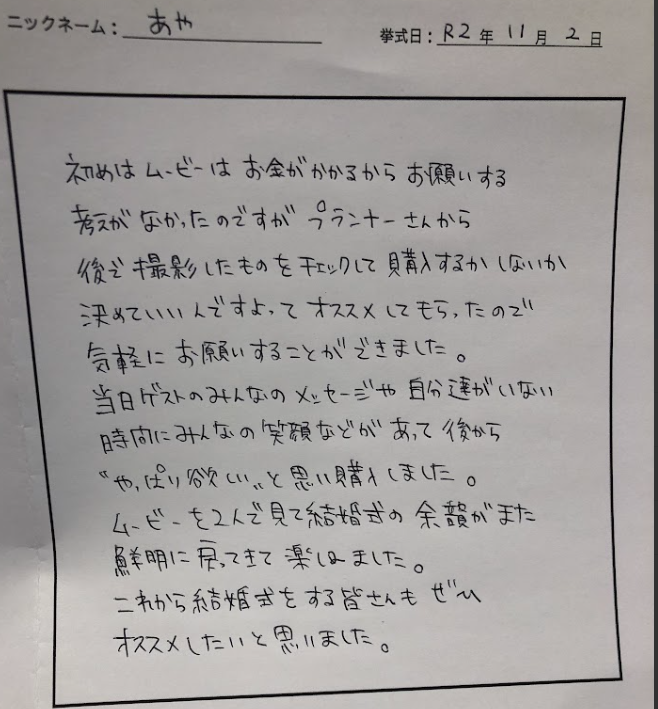 ニックネーム： あや
挙式日： R2 年 11 月 2 日
初めは ムービーは お金がかかるから お願いする
考えが なかったのですが プランナーさんから
後で 撮影したものを チェックして 購入するか しないか
決めていいんですよって オススメしてもらったので
気軽に お願いすることができました。
当日ゲストのみんなの メッセージや 自分達がいない
時間にみんなの 笑顔などが あって 後から
"やっぱり欲しい"と 思い購入しました。
ムービーを2人で見て結婚式の 余韻がまた
鮮明に 戻ってきて 楽しめました。
これから結婚式をする皆さんも ぜひ
オススメしたいと思いました。